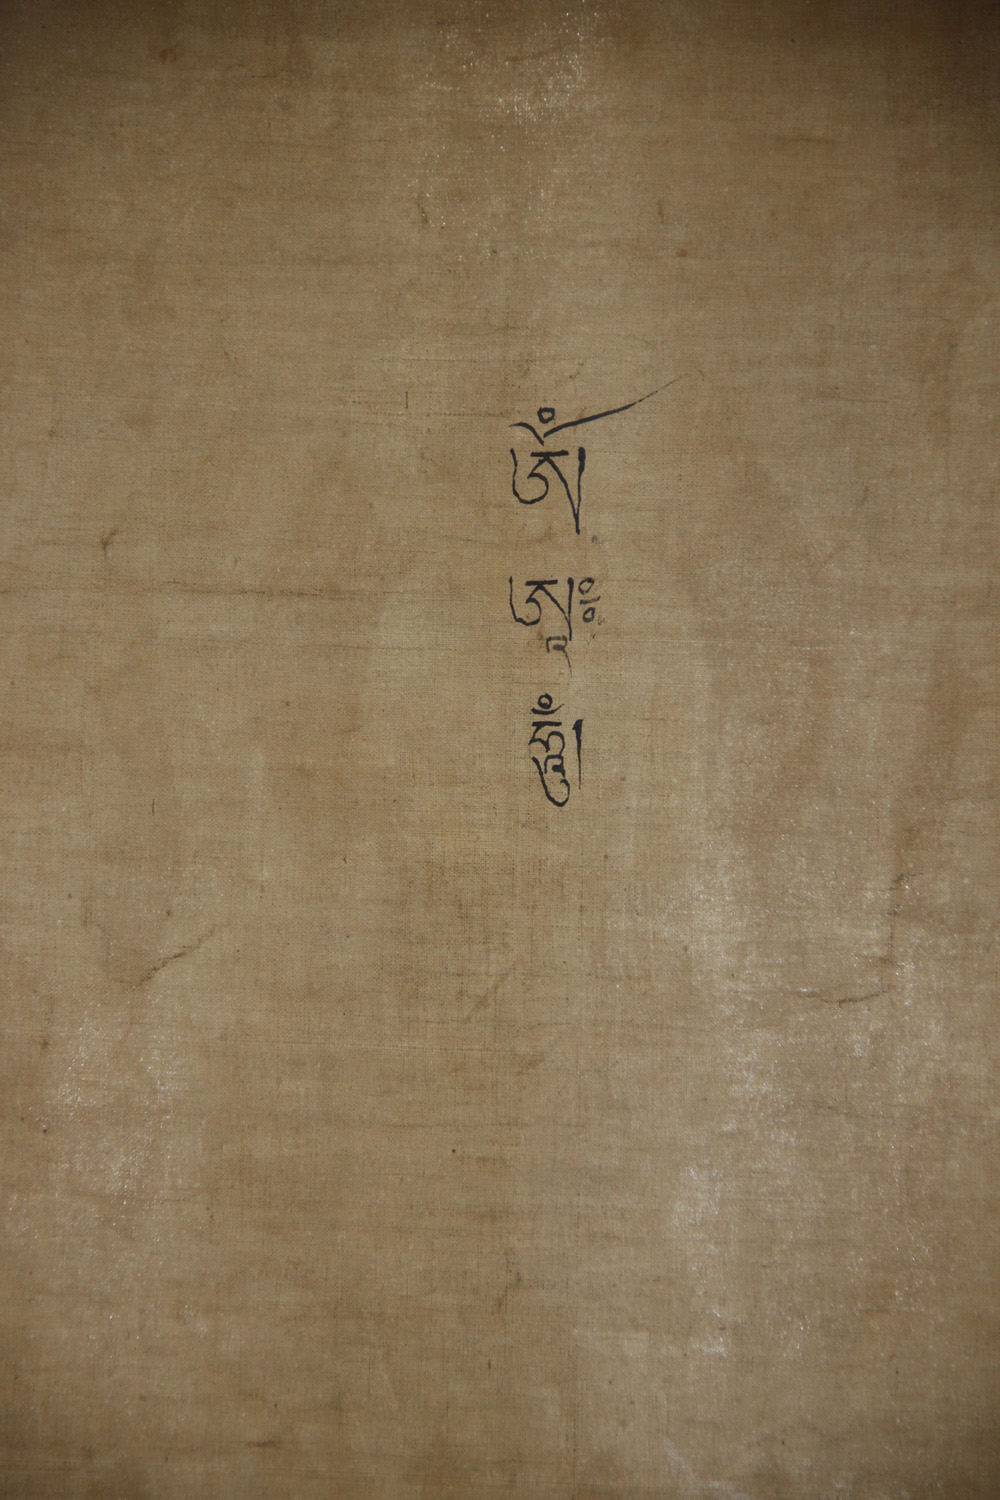 ཨོཾ།
ཨཱཿ
ཧཱུྃ།